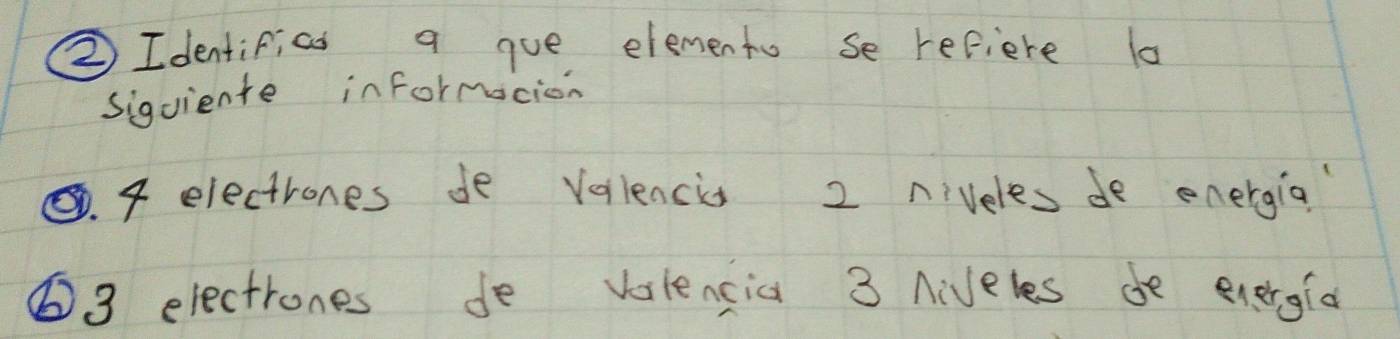 ② Identificas a que elemento se refiere la
siguiente información
a. 4 electrones de valencia 2 niveles de energía
b 3 electrones de valencia 3 niveles de energía